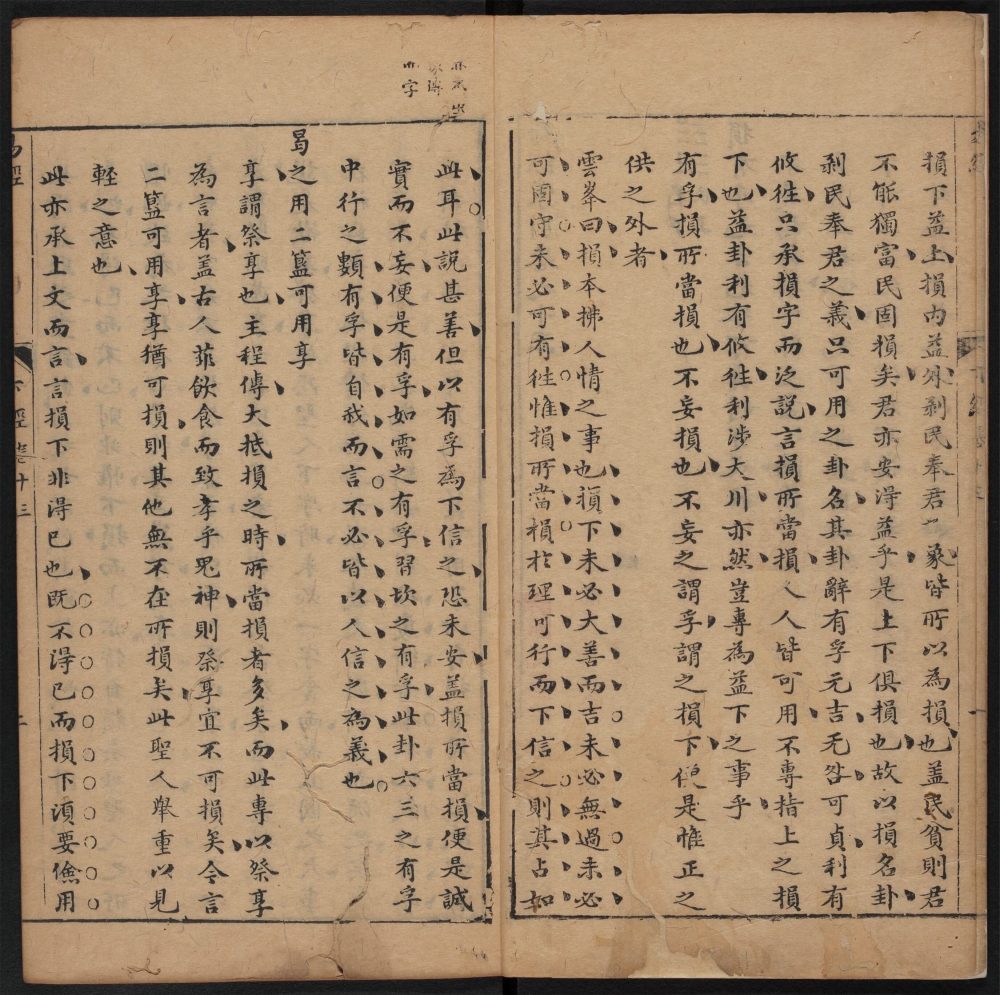 損下益上損内益外剥民奉君之象皆所以為損也盖民貧則君
不能獨富民固損矣君亦安淂益乎是上下俱損也故以損名卦
剥民奉君之義只可用之卦名其卦辭有孚元吉无咎可貞利有
攸徃只承損字而泛説言損所當損人人皆可用不專指上之損
下也益卦利有攸徃利涉大川亦然豈専為益下之事乎
有孚損所當損也不妄損也不妄之謂孚謂之損下便是惟正之
供之外者
雲峯曰損本拂人情之事也損下未必大善而吉未必無過未必
可固守未必可有徃惟損所當損於理可行而下信之則其占如
此耳此説甚善但以有孚為下信之恐未安盖損所當損便是誠
實而不妄便是有孚如需之有孚習坎之有孚此卦六三之有孚
中行之類有孚皆自我而言不必皆以人信之為義也
曷之用二簋可用享
享謂祭享也主程傳大抵損之時所當損者多矣而此專以祭享
為言者盖古人菲飲食而致孝乎鬼神則祭享宜不可損矣今言
二簋可用享享猶可損則其他無不在所損矣此聖人舉重以見
輕之意也
此亦承上文而言言損下非淂已也既不淂已而損下湏要儉用
下經
十三